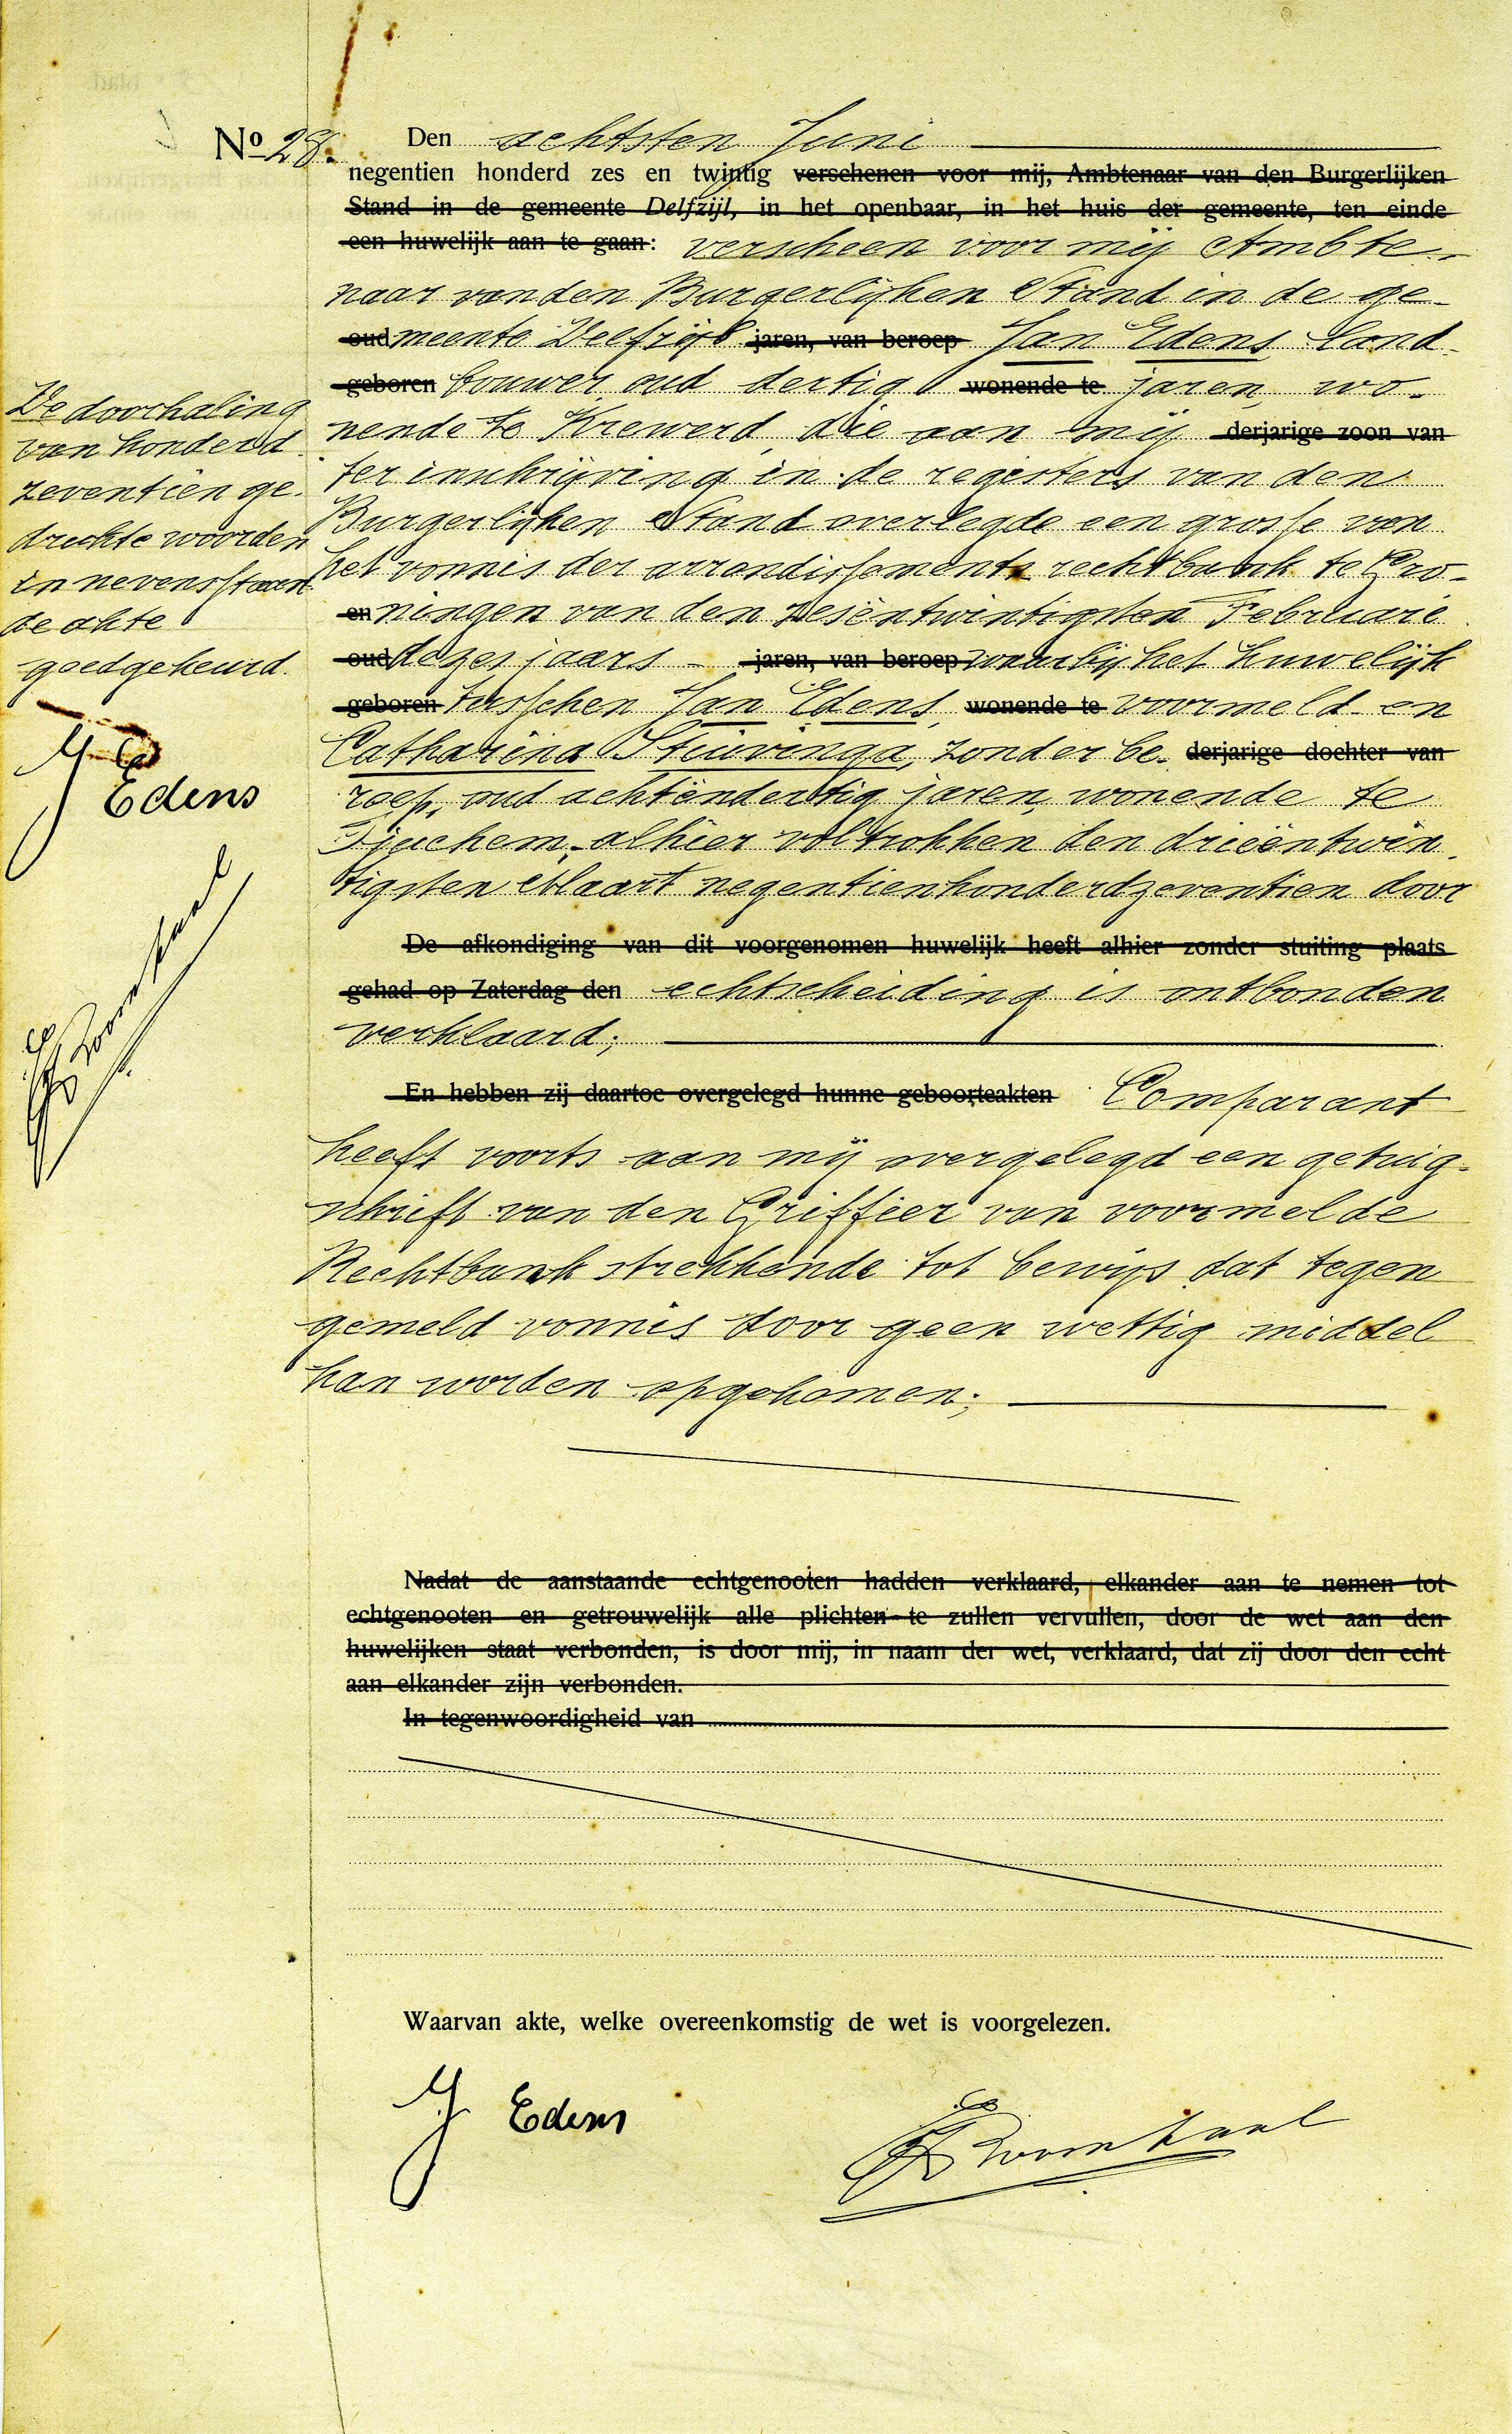 No 28.
Den achtsten Juni
negentien honderd zes en twintig verschenen voor mij, Ambtenaar van den Burgerlijken
Stand in de gemeente Delfzijl, in het openbaar, in het huis der gemeente, ten einde
een huwelijk aan te gaan: verscheen voor mij Ambte-
naar van den Burgerlijken Stand in de ge-
oud meente Delfzijl jaren, van beroep Jan Edens, land-
geboren bouwer, oud dertig wonende te jaren, wo-
nende te Krewerd, die aan mij derjarige zoon van
ter inschrijving in de registers van den
Burgerlijken Stand overlegde een grosse van
het vonnis der arrondissements rechtbank te Gro-
en ningen van den zesëntwintigsten Februari
oud dezes jaars - jaren, van beroep waarbij het huwelijk
geboren tusschen Jan Edens, wonende te voormeld en
Catharina Stuivinga, zonder be- derjarige dochter van
roep, oud achtëndertig jaren, wonende te
Tjuchem, alhier voltrokken den drieëntwin-
tigsten Maart negentienhonderdzeventien door
De afkondiging van dit voorgenomen huwelijk heeft alhier zonder stuiting plaats
gehad op Zaterdag den echtscheiding is ontbonden
verklaard;
En hebben zij daartoe overgelegd hunne geboorteakten Comparant
heeft voorts aan mij overgelegd een getuig-
schrift van den Griffier van voormelde
Rechtbank strekkende tot bewijs dat tegen
gemeld vonnis door geen wettig middel
kan worden opgekomen;
Nadat de aanstaande echtgenooten hadden verklaard, elkander aan te nemen tot
echtgenooten en getrouwelijk alle plichten te zullen vervullen, door de wet aan den
huwelijken staat verbonden, is door mij, in naam der wet, verklaard, dat zij door den echt
aan elkander zijn verbonden.
In tegenwoordigheid van
Waarvan akte, welke overeenkomstig de wet is voorgelezen.
J Edens
De doorhaling
van honderd
zeventien ge-
drukte woorden
in nevensstaan
de akte
goedgekeurd.
J Edens